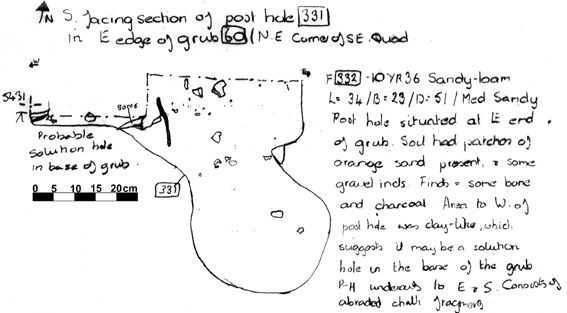 N S. facing section of post hole 331
in E edge of grub 60 / N.E. Corner of S.E. Quad
W
E
5431
Bone
Probable
solution hole
in base of grub.
0 5 10 15 20cm
331
F 332 - 10YR36 Sandy-loam
L= 34 / B= 29 / D= 51 / Med Sandy
Post hole situated at E end
of grub. Soil had patches of
orange sand present, & some
gravel incls. Finds = some bone
and charcoal Area to W. of
post hole was clay-like, which
suggests it may be a solution
hole in the base of the grub
P-H undercuts to E & S. Consists of
abraded chalk fragments